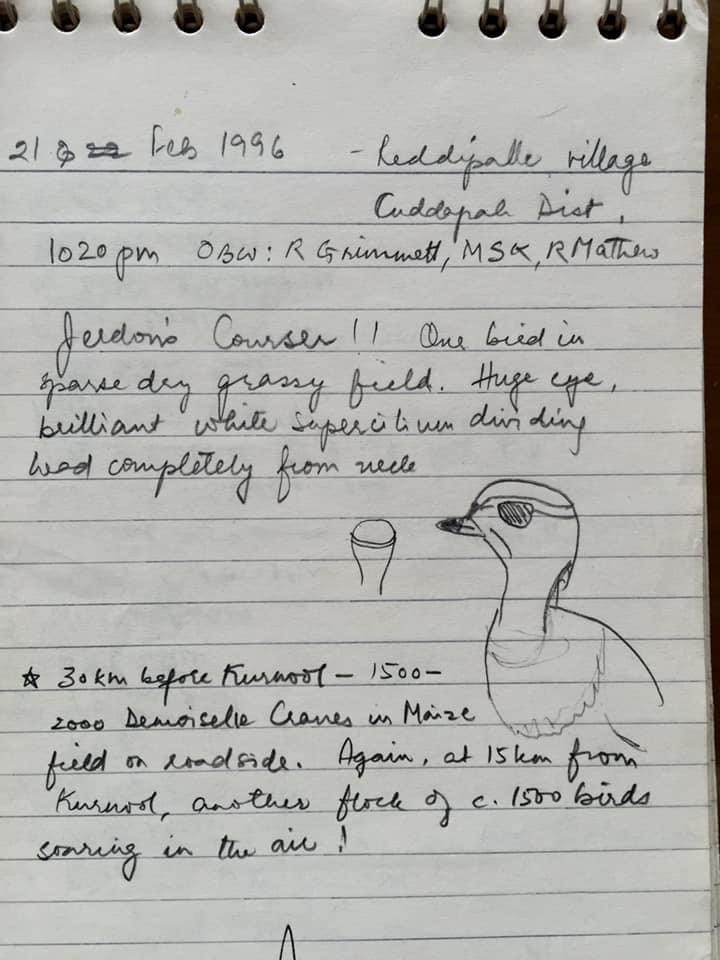 21 & 22 Feb 1996 - Reddipalle village
Cuddapah Dist,
1020 pm OBW: R Grimmett, MSK, R Mathew
Jerdon's Courser!! One bird in
sparse dry grassy field. Huge eye,
brilliant white supercilium dividing
head completely from neck
☆ 30 km before Kurnool - 1500-
2000 Demoiselle Cranes in Maize
field on roadside. Again, at 15 km from
Kurnool, another flock of c. 1500 birds
soaring in the air!